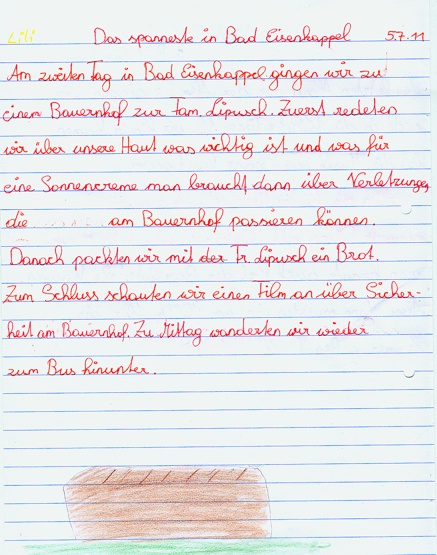 Lili Das spanneste in Bad Eisenkappel 5.7.11
Am zweiten Tag in Bad Eisenkappel gingen wir zu
einem Bauernhof zur Fam. Lipusch. Zuerst redeten
wir über unsere Haut was wichtig ist und was für
eine Sonnencreme man braucht dann über Verletzungen
die am Bauernhof passieren können.
Danach packten wir mit der Fr. Lipusch ein Brot.
Zum Schluss schauten wir einen Film an über Sicher-
heit am Bauernhof. Zu Mittag wanderten wir wieder
zum Bus hinunter.